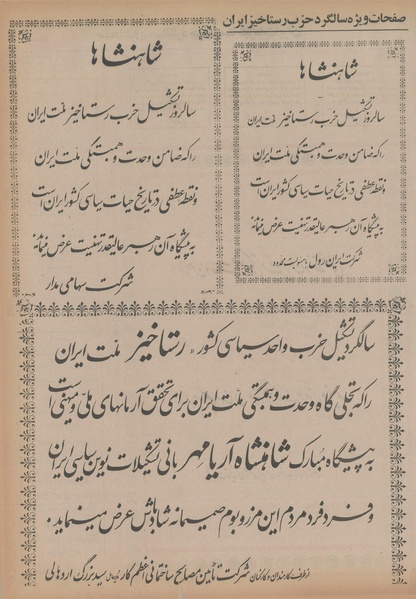 صفحات ویژه سالگرد حزب رستاخیز ایران
شاهنشاها
سالروز تشکیل حزب رستاخیز ملت ایران
را که ضامن وحدت و همبستگی ملت ایران
و نقطه عطفی در تاریخ حیات سیاسی کشور ایران است
به پیشگاه آن رهبر عالیقدر تهنیت عرض مینماید
شرکت ایران رول با مسئولیت محدود
شاهنشاها
سالروز تشکیل حزب رستاخیز ملت ایران
را که ضامن وحدت و همبستگی ملت ایران
و نقطه عطفی در تاریخ حیات سیاسی کشور ایران است
به پیشگاه آن رهبر عالیقدر تهنیت عرض مینماید
شرکت سهامی مدار
سالگرد تشکیل حزب واحد سیاسی کشور « رستاخیز ملت ایران
را که تجلی گاه وحدت و همبستگی ملت ایران برای تحقق آرمانهای ملی و میهنی است
به پیشگاه مبارک شاهنشاه آریامهر بانی تشکیلات نوین سیاسی ایران
و فرد فرد مردم این مرز و بوم صمیمانه شادباش عرض مینماید .
از طرف کارمندان و کارکنان شرکت تأمین مصالح ساختمانی اعظم کار سید بزرگ اردهالی